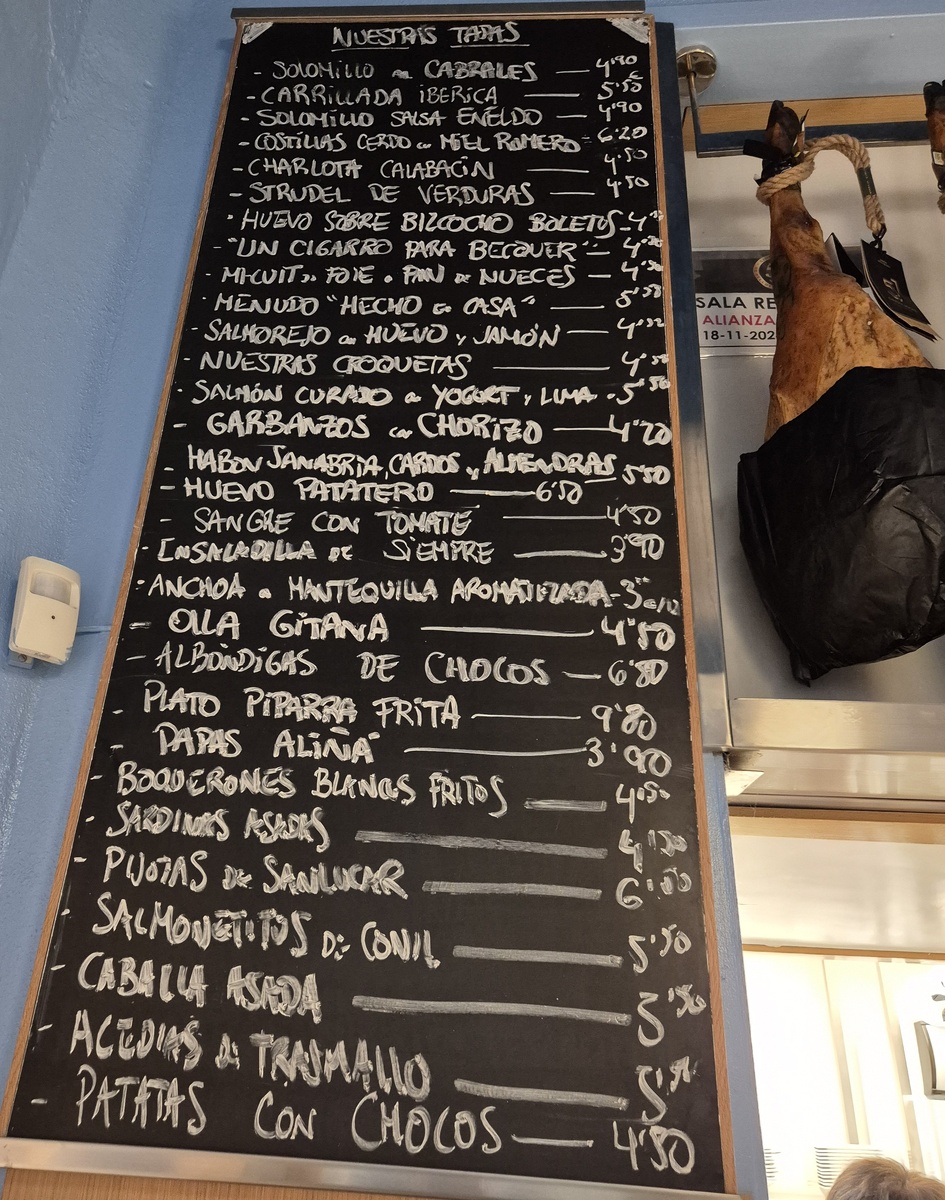 NUESTRAS TAPAS
- SOLOMILLO AL CABRALES — 4'90
- CARRILLADA IBERICA — 5'50 €
- SOLOMILLO SALSA ENELDO — 4'90
- COSTILLAS CERDO CON MIEL ROMERO - 6'20
- CHARLOTA CALABACIN — 4'50
- STRUDEL DE VERDURAS — 4'50
- HUEVO SOBRE BIZCOCHO BOLETUS - 4'
- "UN CIGARRO PARA BECQUER" — 4'50
- MI-CUIT DE FOIE PAN DE NUECES — 4'50
- MENUDO "HECHO EN CASA" — 5'50
- SALMOREJO CON HUEVO Y JAMÓN — 4'
- NUESTRAS CROQUETAS — 4'50
- SALMÓN CURADO YOGURT Y LIMA - 5'50
- GARBANZOS CON CHORIZO — 4'20
- HABON SANABRIA, CARDOS Y ALMENDRAS 5'50
- HUEVO PATATERO — 6'50
- SANGRE CON TOMATE — 4'50
- ENSALADILLA DE SIEMPRE — 3'90
- ANCHOA MANTEQUILLA AROMATIZADA - 3'
- OLLA GITANA — 4'50
- ALBÓNDIGAS DE CHOCOS — 6'80
- PLATO PIPARRA FRITA — 9'80
- PAPAS ALIÑÁ — 3'90
- BOQUERONES BLANCOS FRITOS — 4'50
- SARDINAS ASADAS — 4'50
- PIJOTAS DE SANLUCAR — 6'50
- SALMONETITOS DE CONIL — 5'50
- CABALLA ASADA — 5'50
- ACEDIAS DE TRASMALLO — 5'
- PATATAS CON CHOCOS — 4'50
SALA RE
ALIANZA
18-11-202